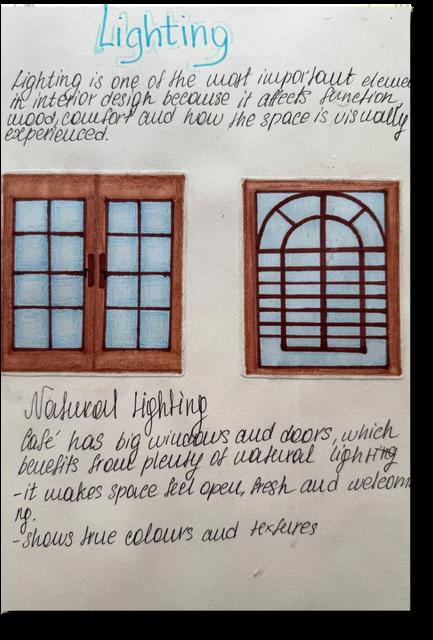 Lighting
Lighting is one of the most important eleme
in interior design because it affects function,
mood, comfort and how the space is visually
experienced.
Natural Lighting
Café has big windows and doors, which
benefits from plenty of natural lighting
- it makes space feel open, fresh and welcom
ng.
- shows true colours and textures